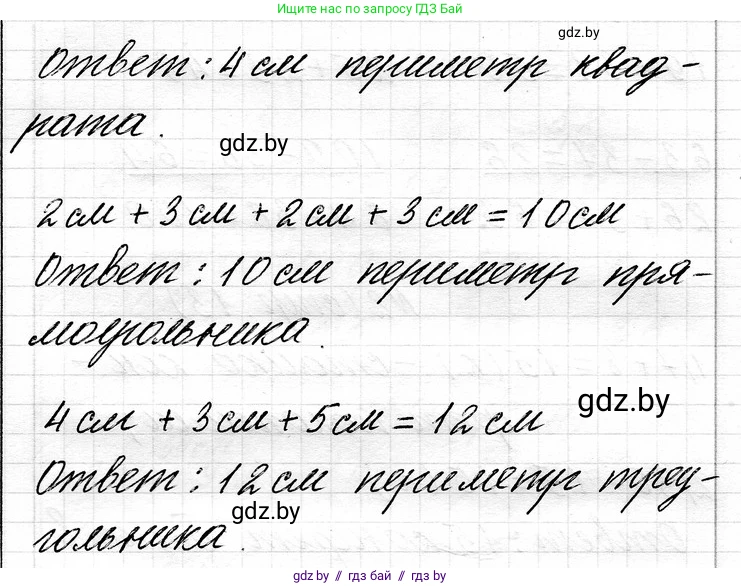 Ищите нас по запросу ГДЗ Бай
gdz.by
Ответ: 4 см периметр квад-
рата.
gdz.by
2 см + 3 см + 2 см + 3 см = 10 см
Ответ: 10 см периметр пря-
моугольника.
4 см + 3 см + 5 см = 12 см
gdz.by
Ответ: 12 см периметр треу-
gdz.by
гольника.
gdz.by // гдз бай // гдз by